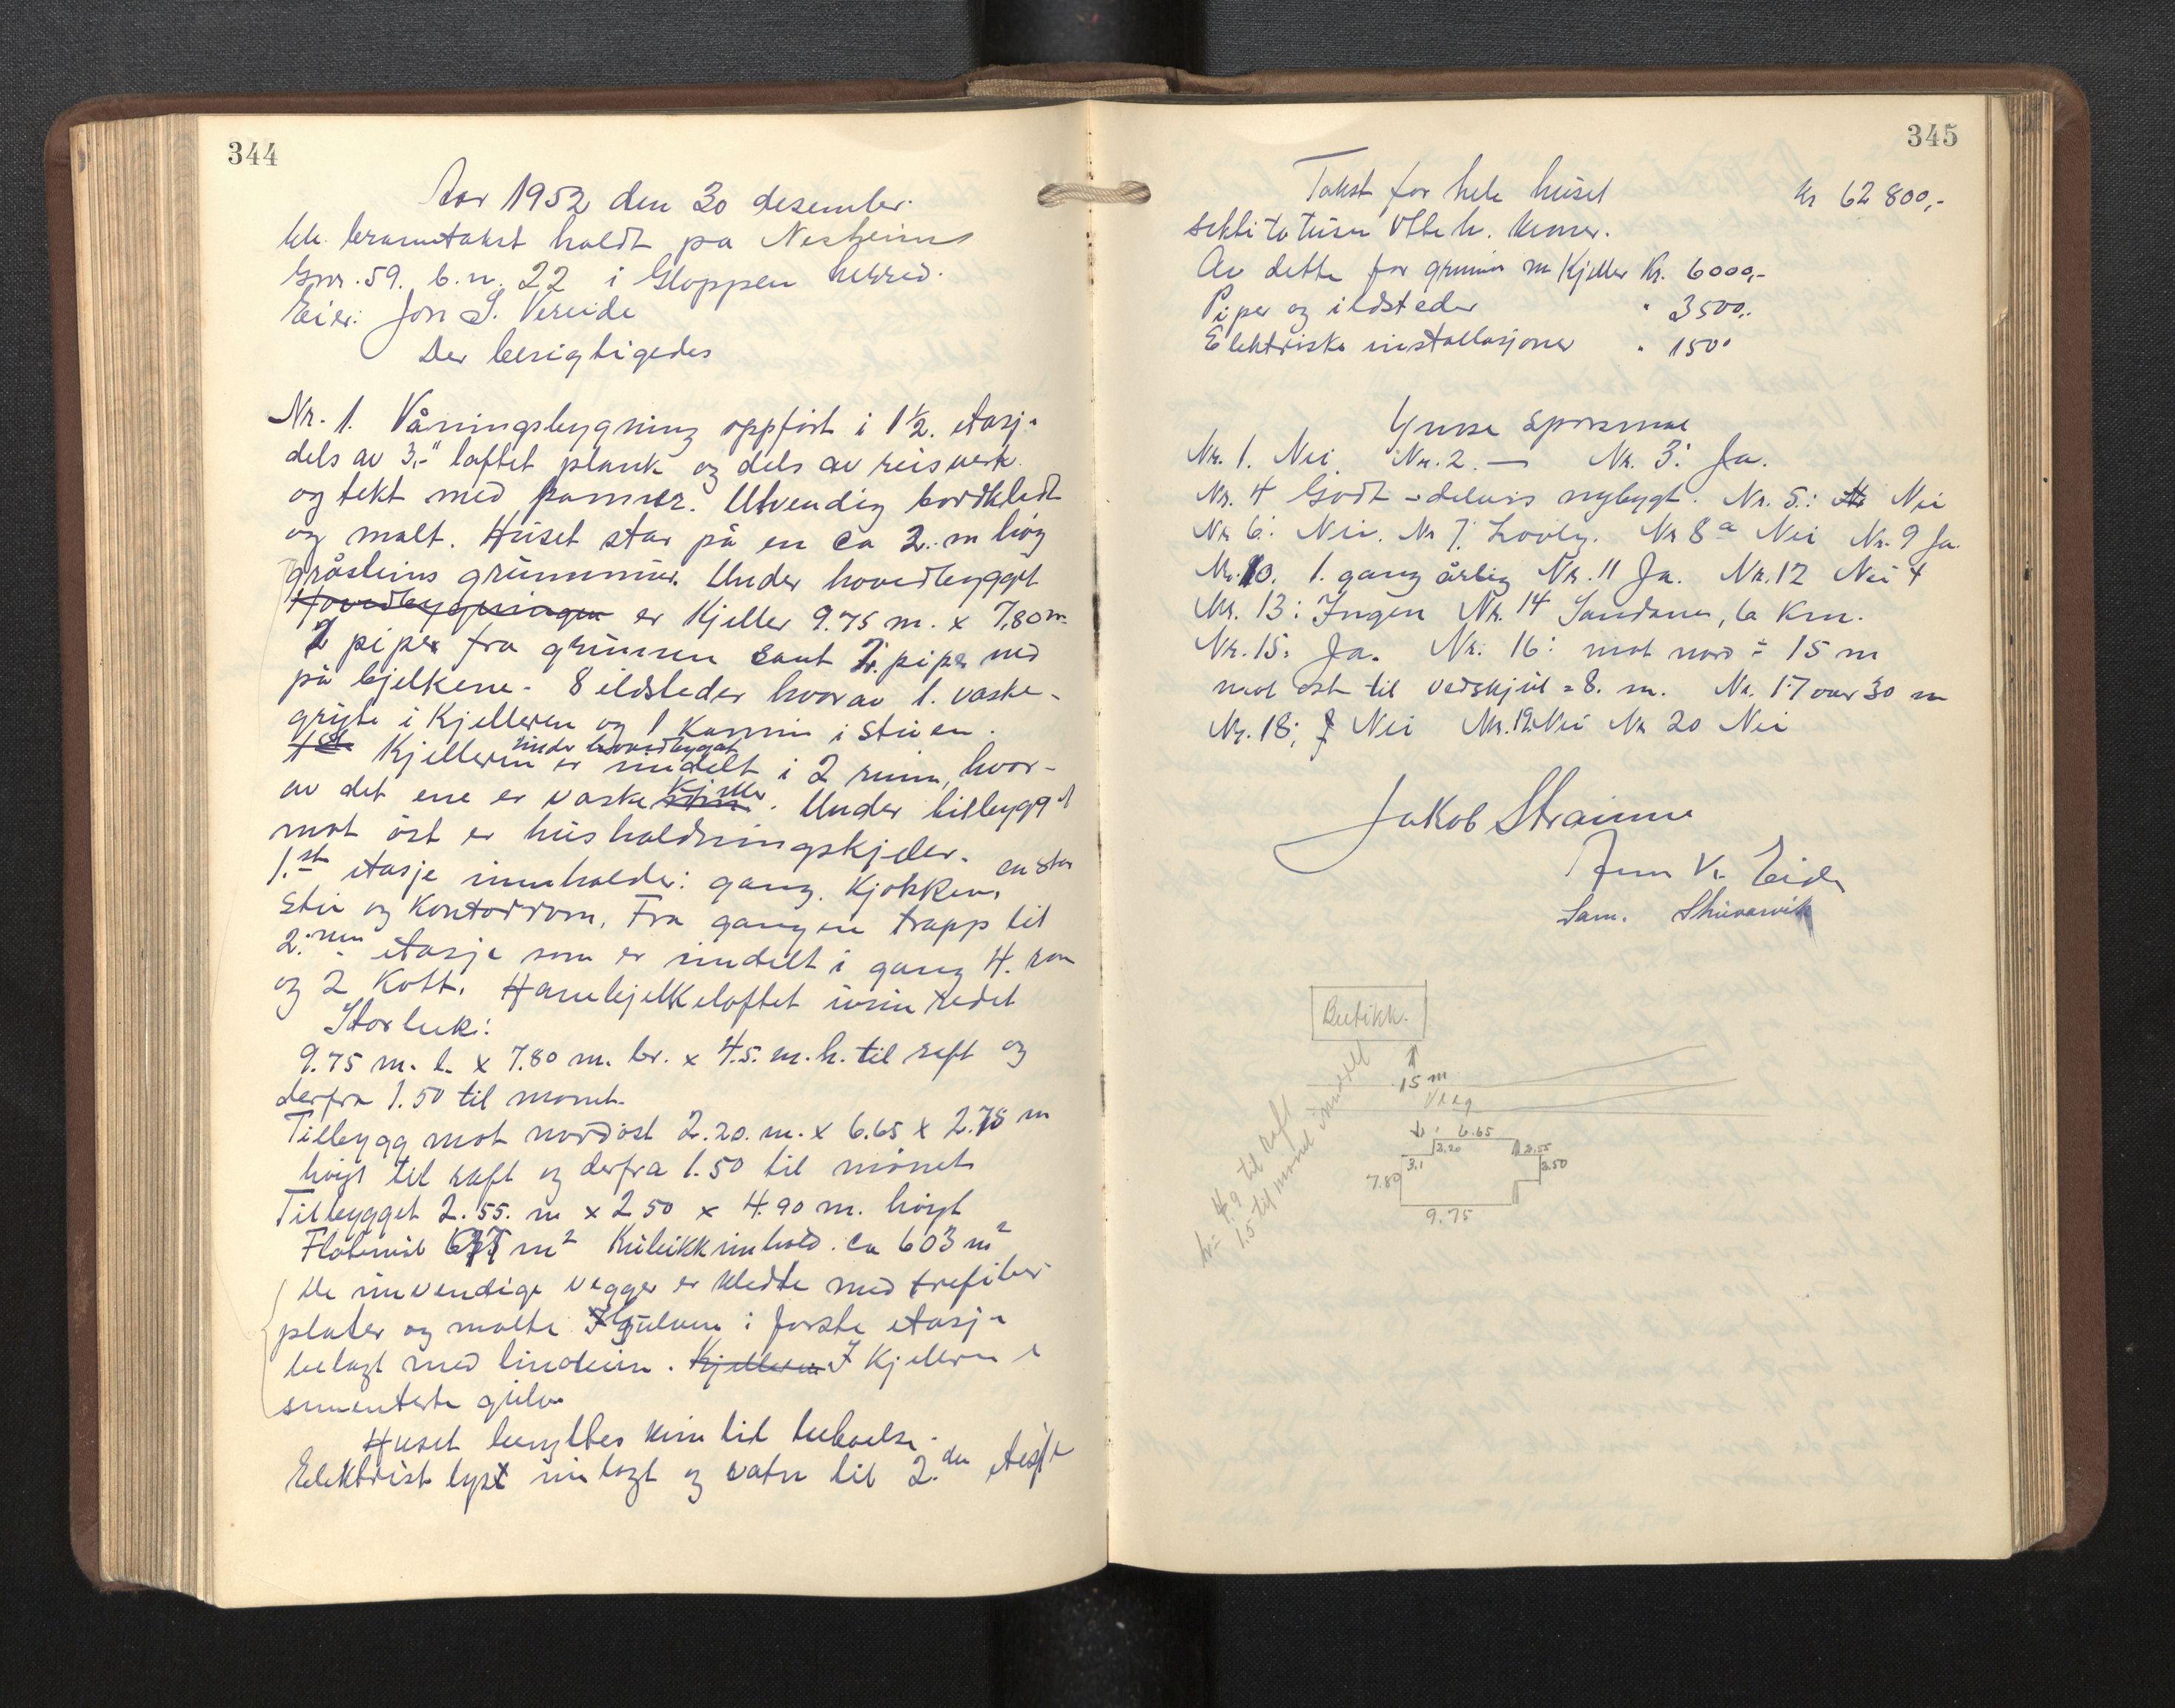 344
Aar 1952 den 30 desember.
ble branntakst holdt på Nesheim
Gnr. 59. b.n. 22 i Gloppen herred.
Eier: Jon S. Vereide
Der besigtigedes
Nr. 1. Våningsbygning oppført i 1½. etasje
dels av 3,-" laftet plank og dels av reisverk
og tekt med panner. Utvendig bordkledt
og malt. Huset står på en ca 2. m høg
gråsteins grunnmur. Under hovedbygget
Hovedbygningen er Kjeller 9.75 m. x 7,80 m.
2 piper fra grunnen samt 2. piper ned
på bjelkene. 8 ildsteder hvorav 1. vaske-
gryte i Kjelleren og 1 Kamin i stuen.
Kjelleren under hovedbygget er inndelt i 2 rum, hvor-
av det ene er vaske kjeller. Under tilbygget
mot øst er husholdningskjeller.
1.ste etasje inneholder: gang, Kjøkken, en stor
stue og Kontorrom. Fra gangen trapp til
2.nen etasje som er inndelt i gang 4. rom
og 2 Kott. Hanebjelkeloftet uinnredet
Storleik:
9.75 m. l. x 7.80 m. br. x 4.5. m. h. til raft og
derfra 1.50 til mønet.
Tilbygg mot nordøst 2.20. m. x 6.65 x 2.75 m
høgt til raft og derfra 1.50 til mønet
Tilbygget 2.55. m x 2 50 x 4.90 m. høgt
Flatemål m² Kubikkinnhold. ca 603 m²
De innvendige vegger er kledte med trefiber
plater og malte Gulvene i første etasje
belagt med linoleum. Kjelleren I Kjelleren er
sementerte gulv.
Huset benyttes kun til beboelse.
Elektrisk lyst innlagt og vatn til 2.den etasje
345
Takst for hele huset kr 62 800,-
sekstitotusen åtte h. kroner.
Av dette for grunnm m Kjeller Kr. 6000,-
Piper og ildsteder " 3500,-
Elektriske installasjoner " 1500
Ymse spørsmål
Nr. 1. Nei. Nr. 2. — Nr. 3: Ja.
Nr. 4 Godt - delvis nybygt. Nr. 5.: Nei
Nr 6: Nei. Nr 7: Lovlig. Nr 8 a Nei Nr. 9 Ja.
Nr. 10. 1. gang årlig Nr. 11 Ja. Nr. 12 Nei
Nr. 13: Ingen Nr. 14 Sandane, 6 Km.
Nr. 15: Ja. Nr. 16: mot nord = 15 m
mot øst til vedskjul = 8. m. Nr. 17 over 30 m
Nr. 18: Nei Nr. 19. Nei Nr 20 Nei
Jakob Straume
Knut Kr. Eide
Sam. Skaarvik
Butikk.
15 m
Veg
6.65
2.20
2.55
3.1
2.50
7.80
9.75
h = 4.9 til raft
1.5 til mønet innredet